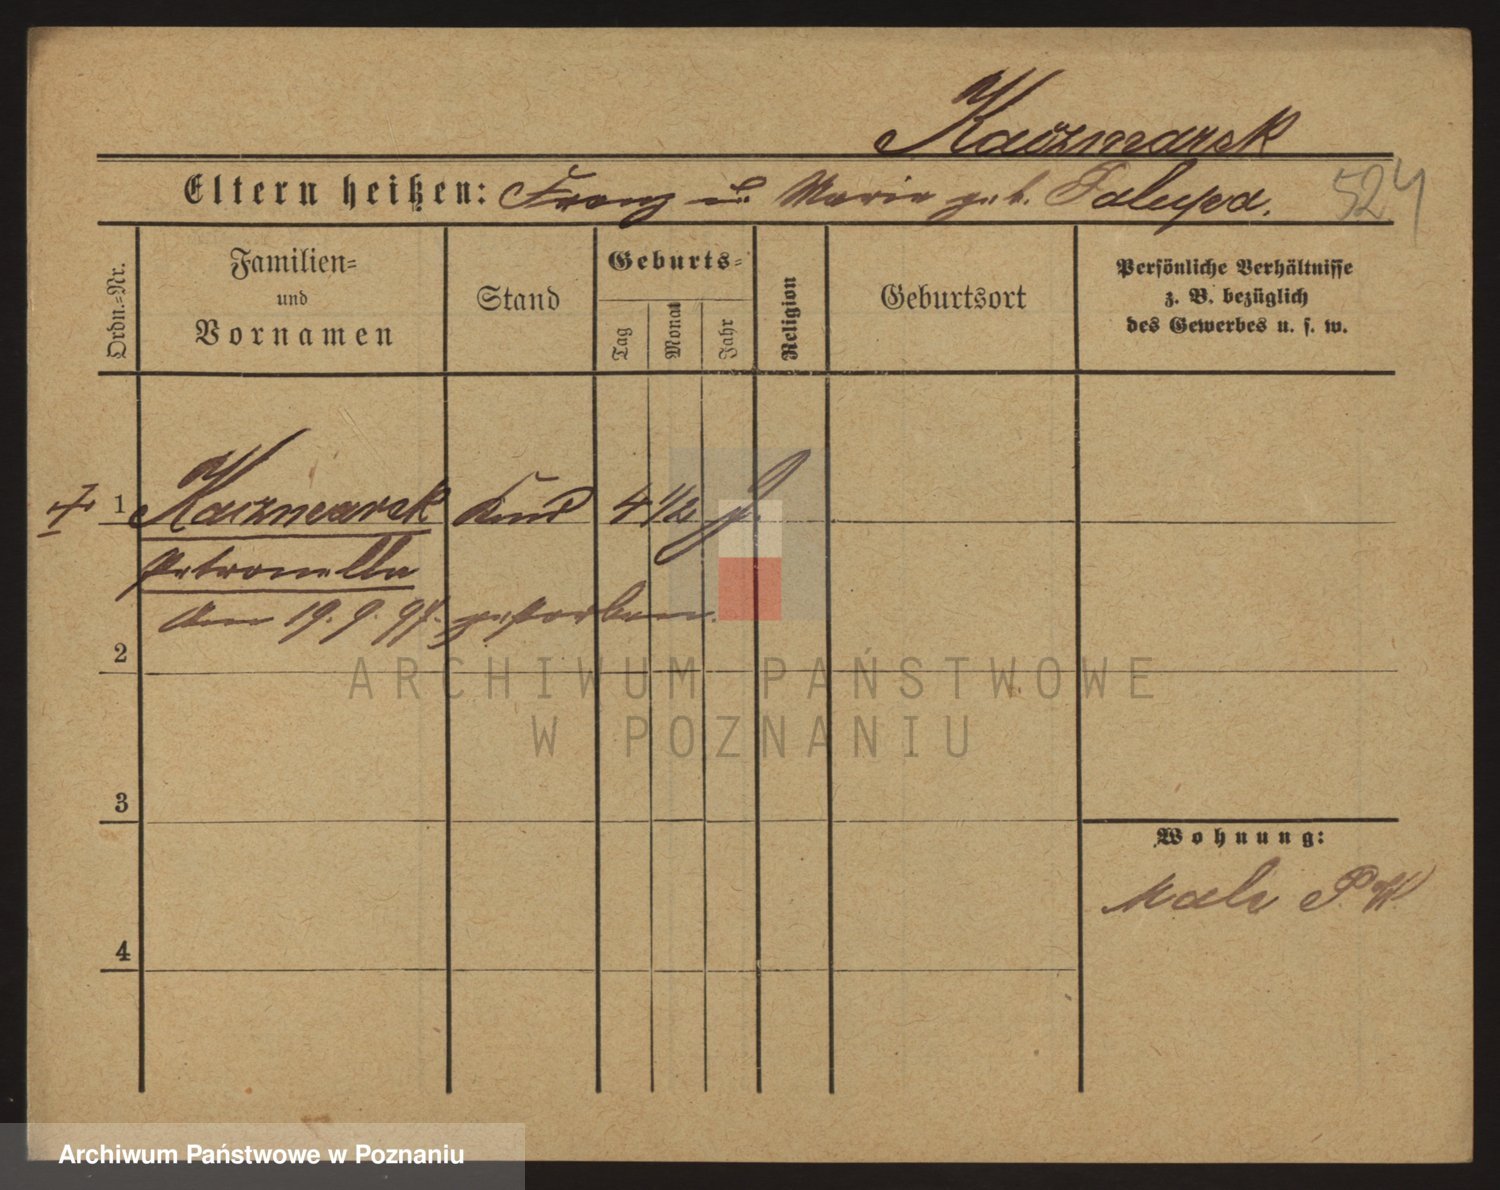 Kaczmarek
Eltern heißen: Franz u. Maria geb. Salupa. 524
Ordn.-Nr.
Familien-
und
Vornamen
Stand
Geburts-
Tag
Monat
Jahr
Religion
Geburtsort
Persönliche Verhältnisse
z. B. bezüglich
des Gewerbes u. s. w.
1 Kaczmarek Kind 4 1/2 J.
Petronella
Am 19. 9. 97. gestorben.
2
ARCHIWUM PAŃSTWOWE
W POZNANIU
3
Wohnung:
4
Archiwum Państwowe w Poznaniu